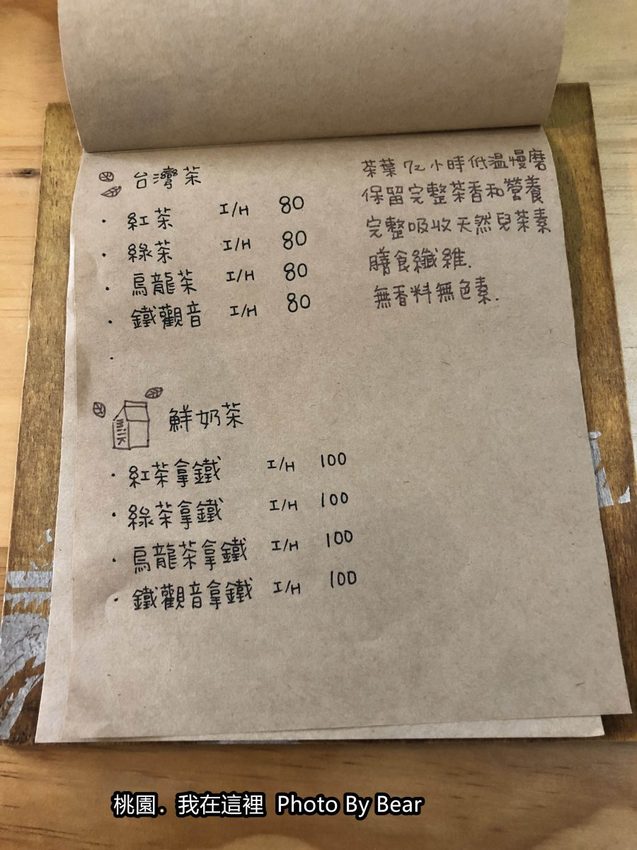 台灣茶
· 紅茶 I/H 80
· 綠茶 I/H 80
· 烏龍茶 I/H 80
· 鐵觀音 I/H 80
·
茶葉72小時低溫慢磨
保留完整茶香和營養
完整吸收天然兒茶素
膳食纖維.
無香料無色素.
milk
鮮奶茶
· 紅茶拿鐵 I/H 100
· 綠茶拿鐵 I/H 100
· 烏龍茶拿鐵 I/H 100
· 鐵觀音拿鐵 I/H 100
桃園．我在這裡 Photo By Bear